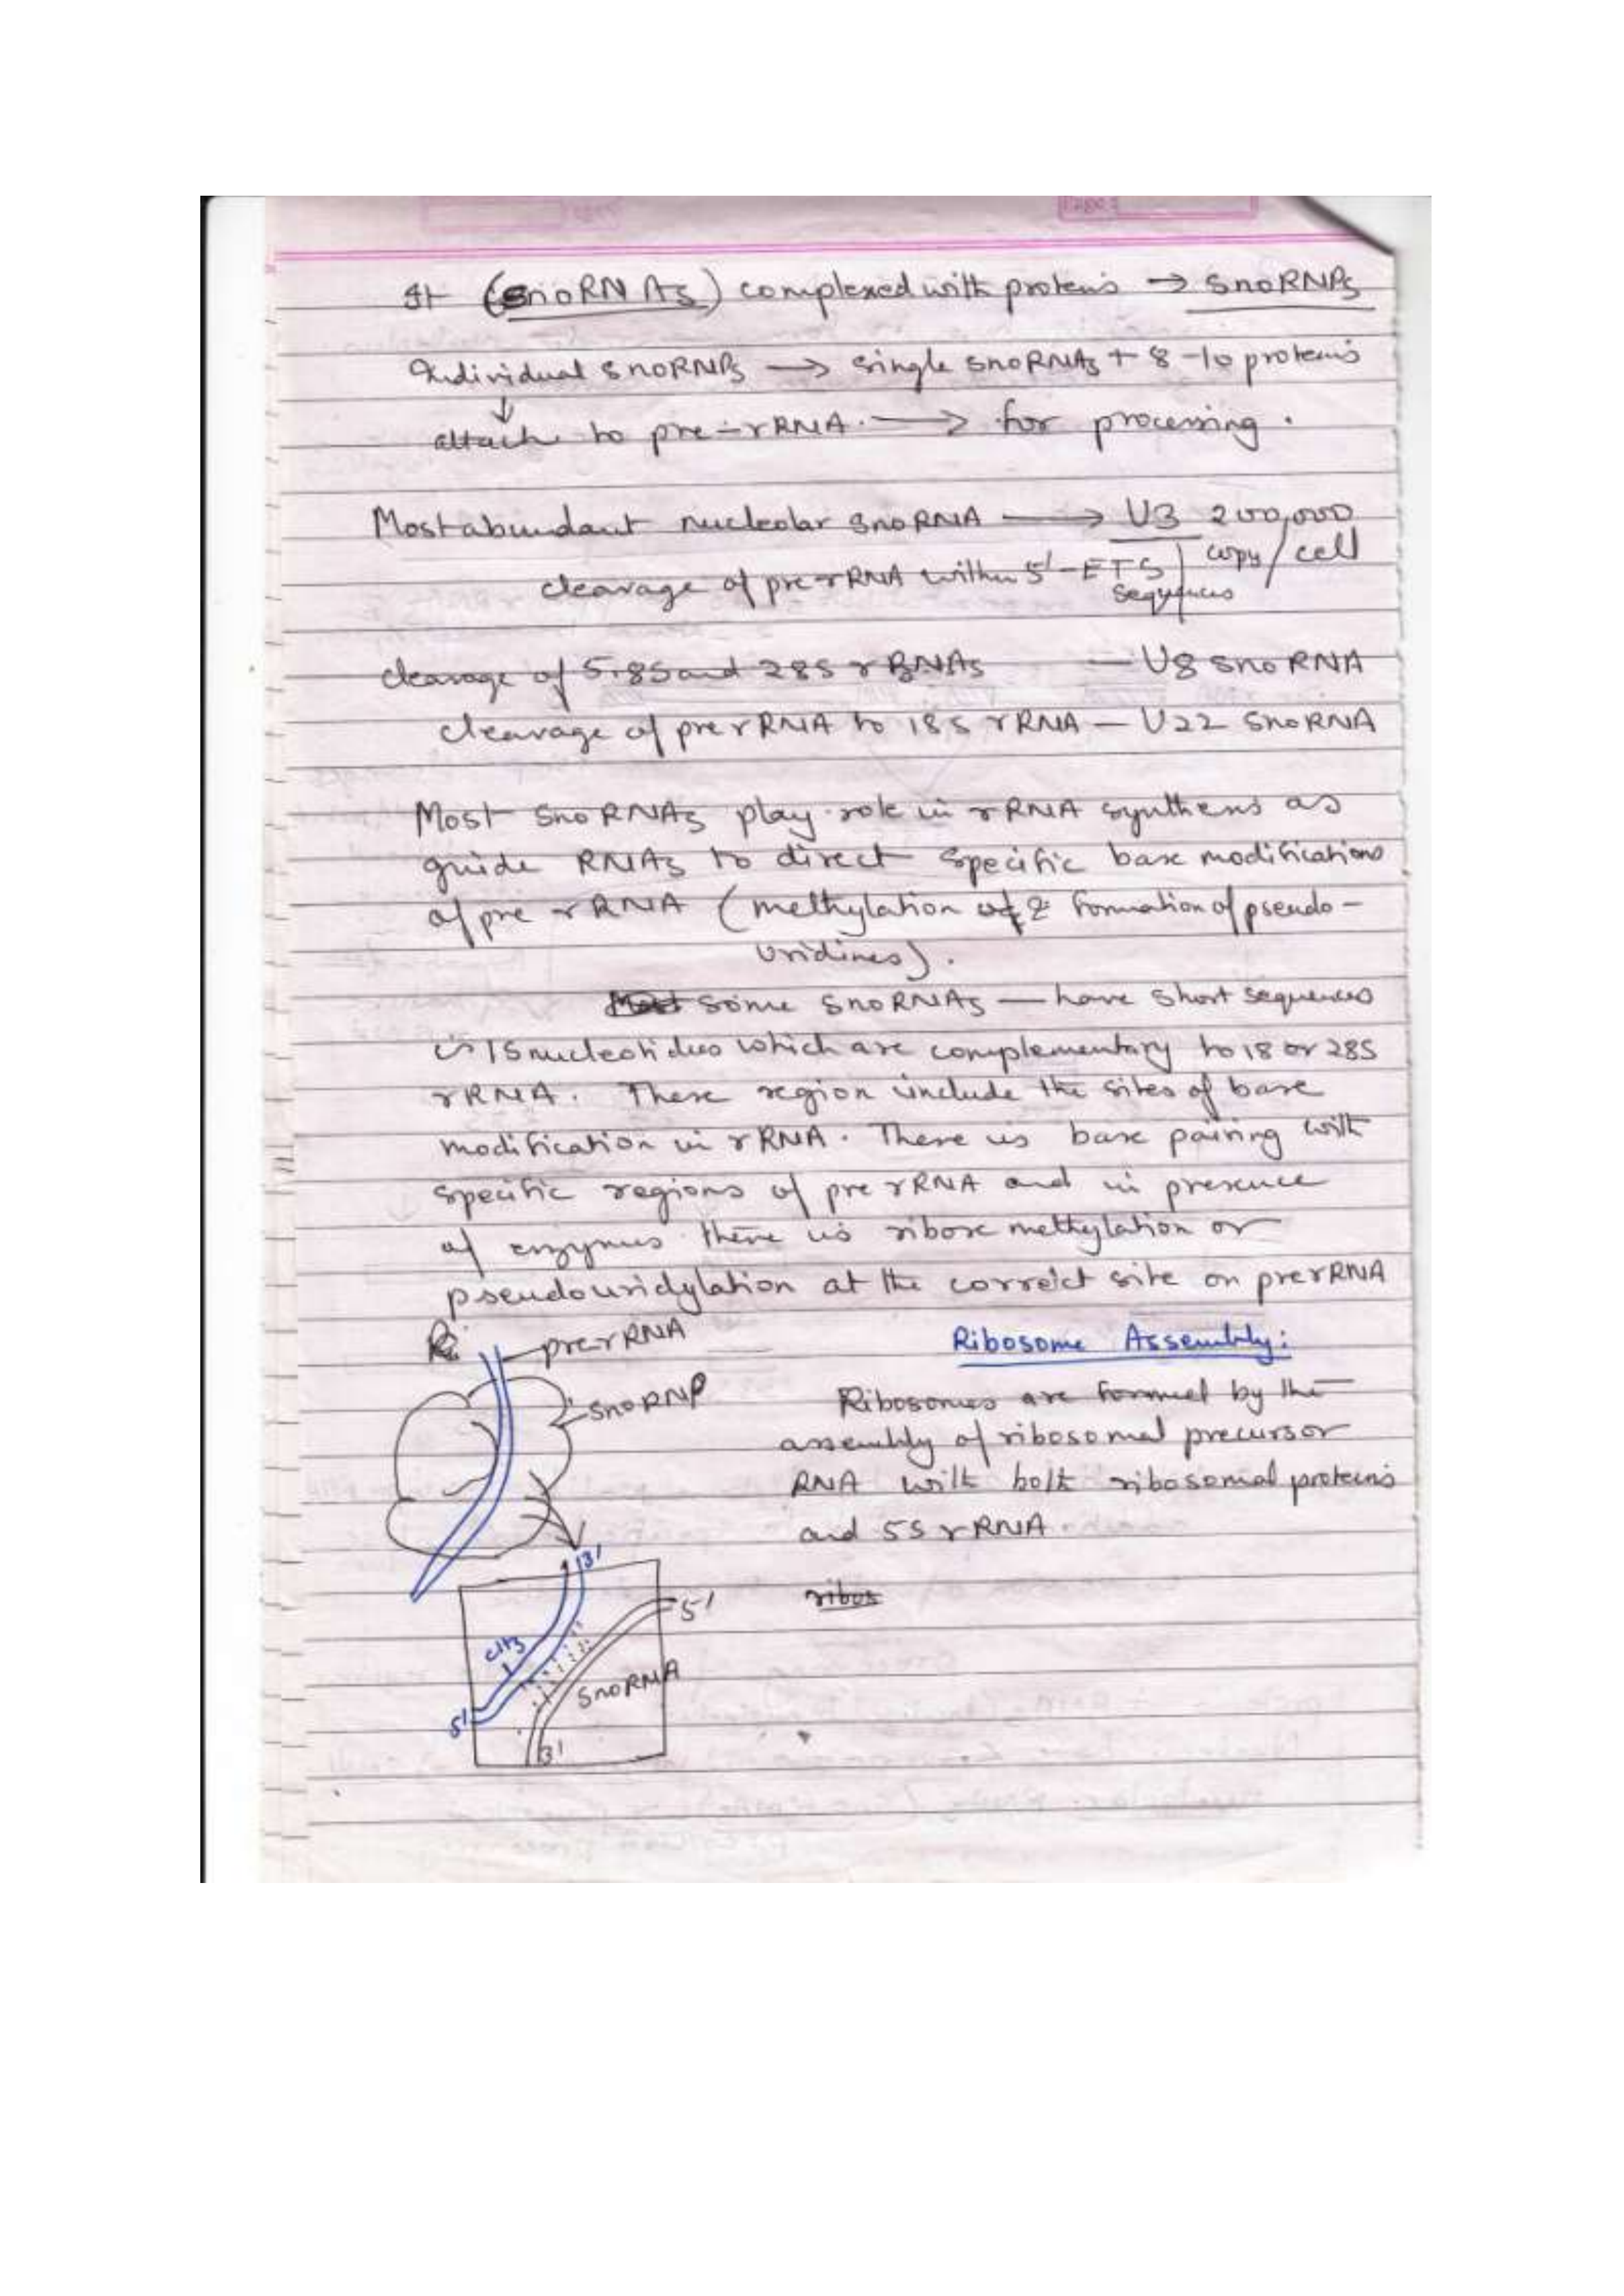 It (snoRNAs) complexed with proteins → snoRNPs
Individual snoRNPs → single snoRNAs + 8-10 proteins
↓
attach to pre-rRNA. → for processing.
Most abundant nucleolar snoRNA → U3 200,000
copy/cell
cleavage of pre-rRNA within 5'-ETS
sequences
cleavage of 5.8S and 28S rRNAs — U8 snoRNA
cleavage of pre rRNA to 18S rRNA — U22 snoRNA
Most snoRNAs play role in rRNA synthesis as
guide RNAs to direct specific base modifications
of pre rRNA (methylation & formation of pseudo-
uridines).
some snoRNAs — have short sequences
15 nucleotides which are complementary to 18 or 28S
rRNA. These region include the sites of base
modification in rRNA. There is base pairing with
specific regions of pre rRNA and in presence
of enzymes there is ribose methylation or
pseudouridylation at the correct site on prerRNA
pre-rRNA
snoRNP
3'
5'
CH3
snoRNA
5'
3'
Ribosome Assembly:
Ribosomes are formed by the
assembly of ribosomal precursor
RNA with both ribosomal proteins
and 5S rRNA.
ribos